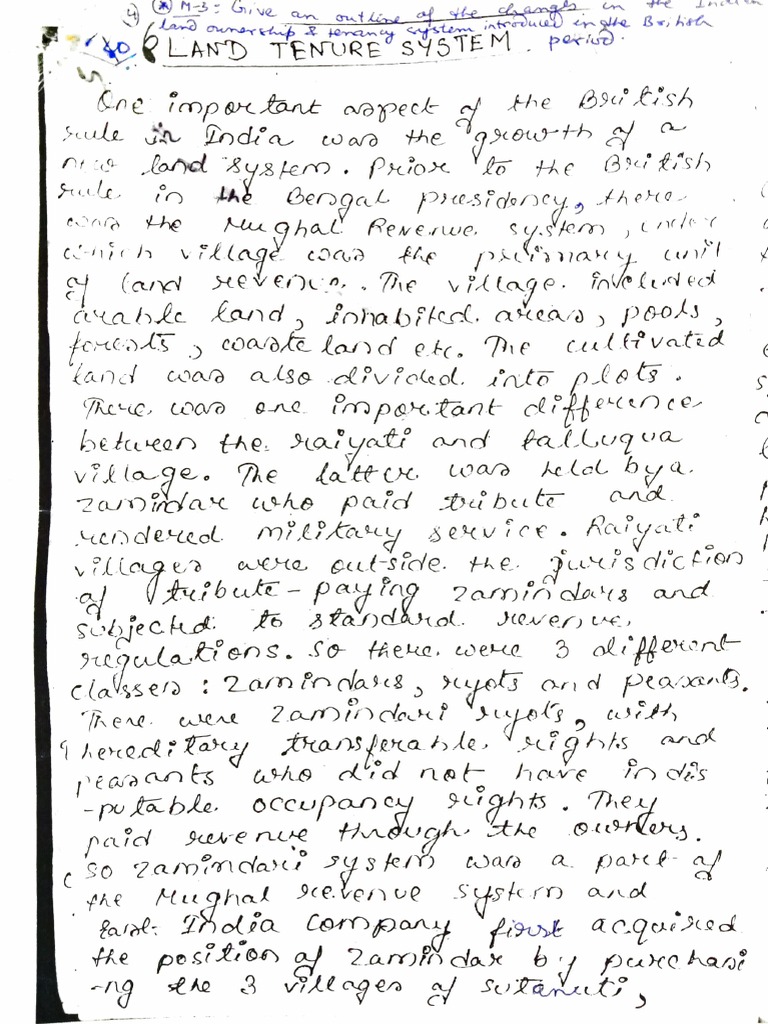 4) (*) M-3: Give an outline of the changes in the Indian
land ownership & tenancy system introduced in the British
period.
6 LAND TENURE SYSTEM.
One important aspect of the British
rule in India was the growth of a
new land system. Prior to the British
rule in the Bengal presidency, there
was the Mughal Revenue system, under
which village was the primary unit
of land revenue. The village included
arable land, inhabited areas, pools,
forests, waste land etc. The cultivated
land was also divided into plots.
There was one important difference
between the raiyati and talluqua
village. The latter was held by a
zamindar who paid tribute and
rendered military service. Raiyati
villages were outside the jurisdiction
of tribute-paying zamindars and
subjected to standard revenue
regulations. So there were 3 different
classes: Zamindars, ryots and peasants.
There were zamindari ryots, with
hereditary transferable rights and
peasants who did not have indis
-putable occupancy rights. They
paid revenue through the owners.
So zamindari system was a part of
the Mughal revenue system and
East India company first acquired
the position of zamindar by purchasi
-ng the 3 villages of sutanuti,